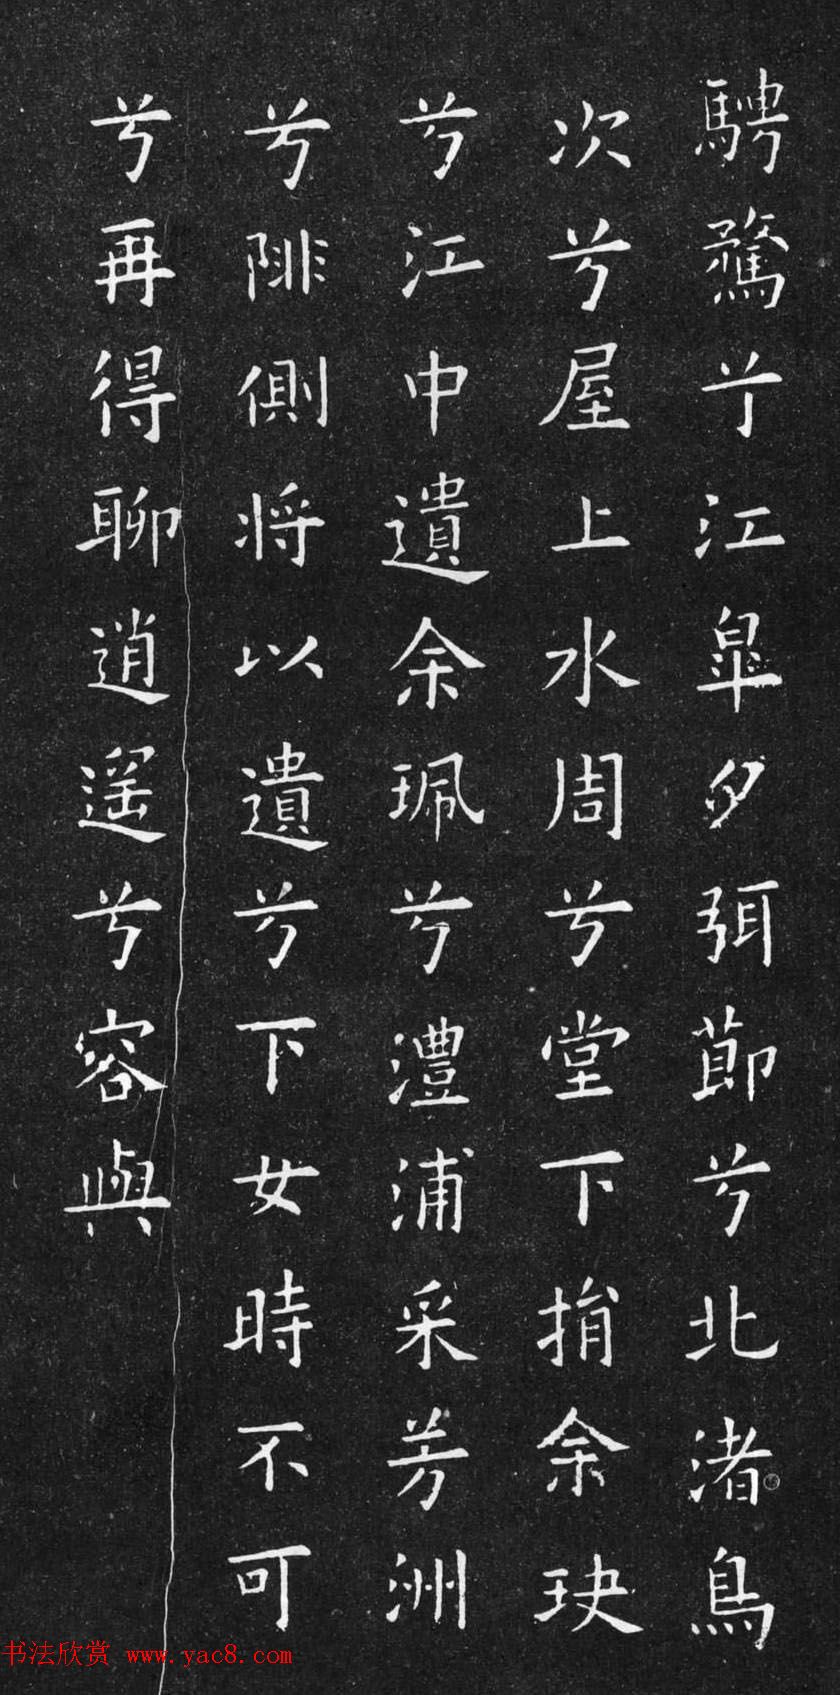 騁騖兮江皐夕弭節兮北渚鳥
次兮屋上水周兮堂下捐余玦
兮江中遺余珮兮澧浦采芳洲
兮陫側将以遺兮下女時不可
兮再得聊逍遙兮容與
书法欣赏 www.yac8.com